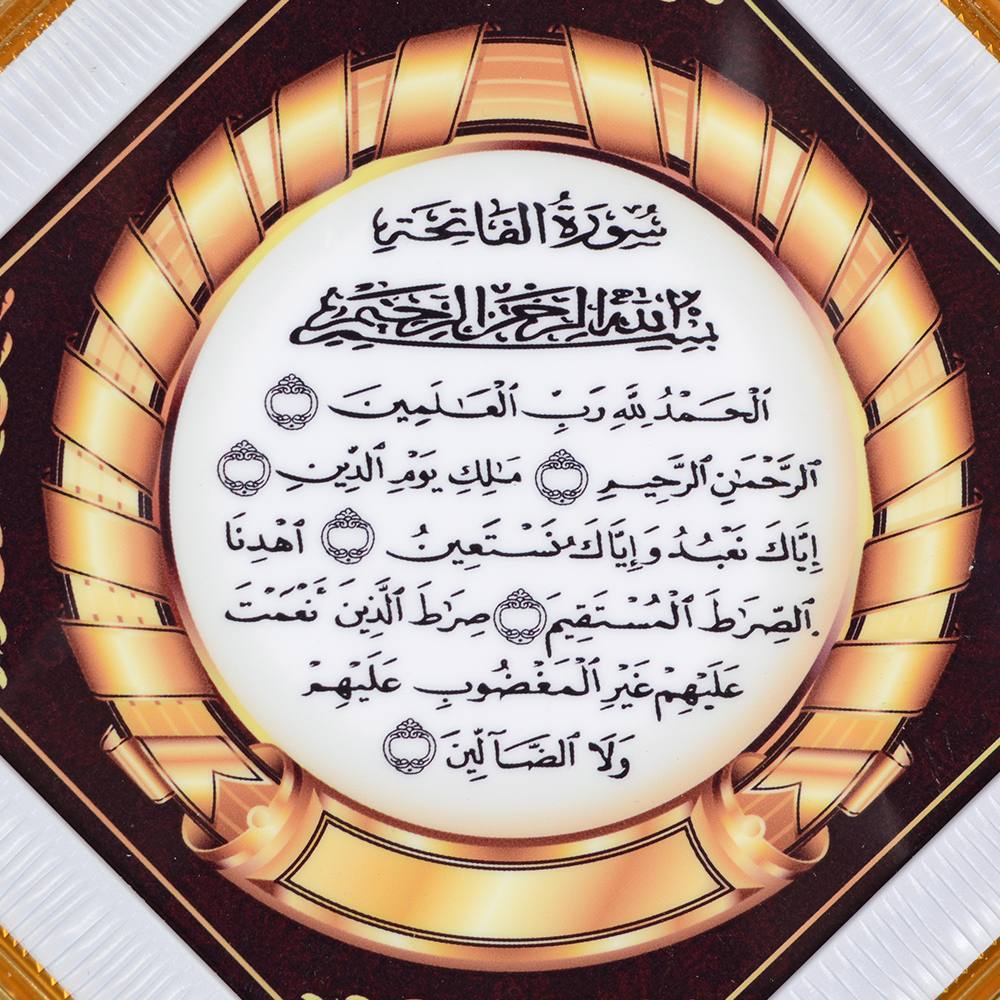 سُورَةُ الفَاتِحَةِ
بِسْمِ اللَّهِ الرَّحْمَٰنِ الرَّحِيمِ
ٱلْحَمْدُ لِلَّهِ رَبِّ ٱلْعَٰلَمِينَ
ٱلرَّحْمَٰنِ ٱلرَّحِيمِ مَٰلِكِ يَوْمِ ٱلدِّينِ
إِيَّاكَ نَعْبُدُ وَإِيَّاكَ نَسْتَعِينُ ٱهْدِنَا
ٱلصِّرَٰطَ ٱلْمُسْتَقِيمَ صِرَٰطَ ٱلَّذِينَ نْعَمْتَ
عَلَيْهِمْ غَيْرِ ٱلْمَغْضُوبِ عَلَيْهِمْ
وَلَا ٱلضَّآلِّينَ